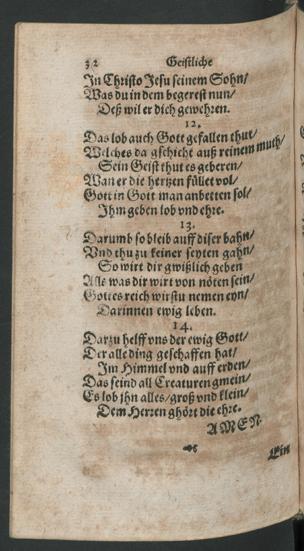 32 Geistliche
In Christo Jesu seinem Sohn/
Was du in dem begerest nun/
Deß wil er dich gewehren.
12.
Das lob auch Gott gefallen thut/
Welches da gschicht auß reinem muth/
Sein Geist thut es geberen/
Wan er die hertzen füllet vol/
Gott in Gott man anbetten sol/
Ihm geben lob vnd ehre.
13.
Darumb so bleib auff diser bahn/
Vnd thu zu keiner seyten gahn/
So wirt dir gwißlich geben
Alls was dir wirt von nöten sein/
Gottes reich wirstu nemen eyn/
Darinnen ewig leben.
14.
Darzu helff vns der ewig Gott/
Der alle ding geschaffen hat/
Im Himmel vnd auff erden/
Das seind all Creaturen gmein/
Es lob jhn alles/ groß vnd klein/
Dem Herren ghört die ehre.
AMEN.
Ein